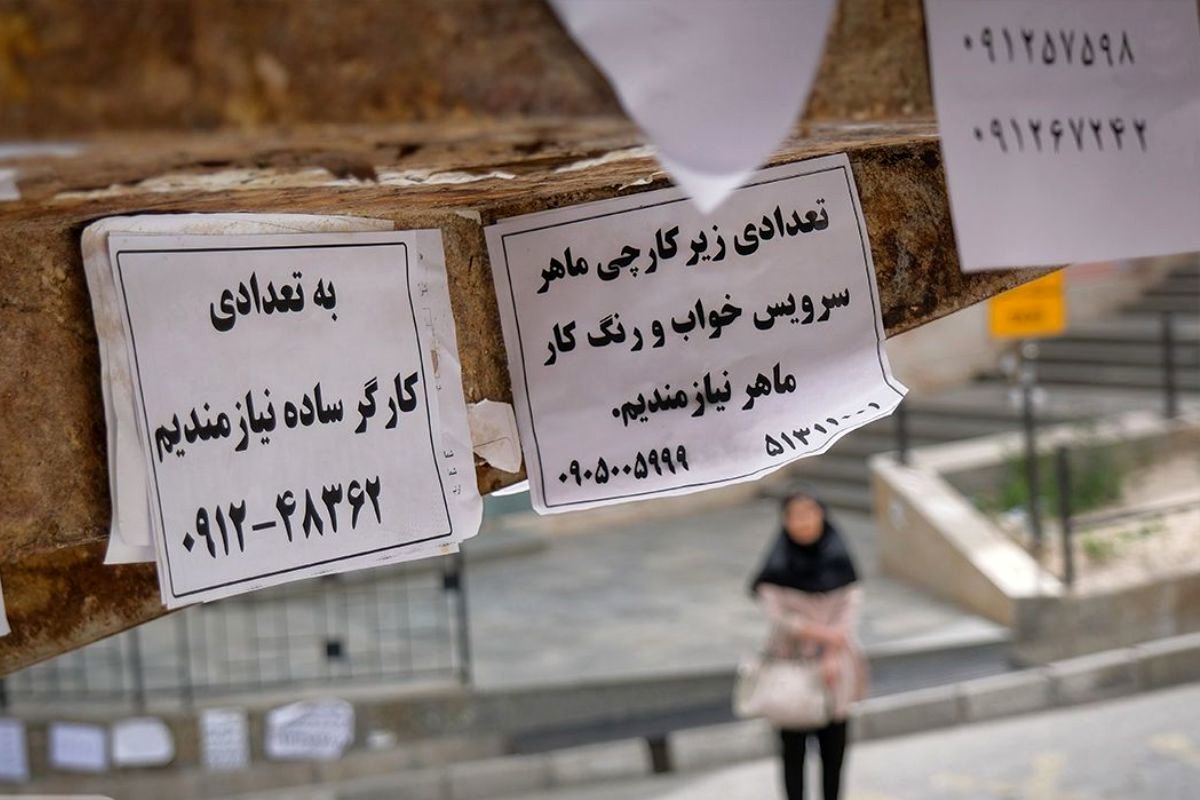 به تعدادی
کارگر ساده نیازمندیم
۰۹۱۲-۴۸۳۶۲
تعدادی زیر کارچی ماهر
سرویس خواب و رنگ کار
ماهر نیازمندیم.
۰۹۰۵۰۰۵۹۹۹ ۵۱۳۱۱۰۰۱
۰۹۱۲۵۷۵۹۸
۰۹۱۲۶۷۲۴۲